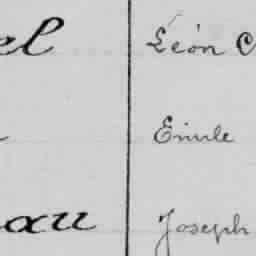 el Léon C
Emile
au Joseph